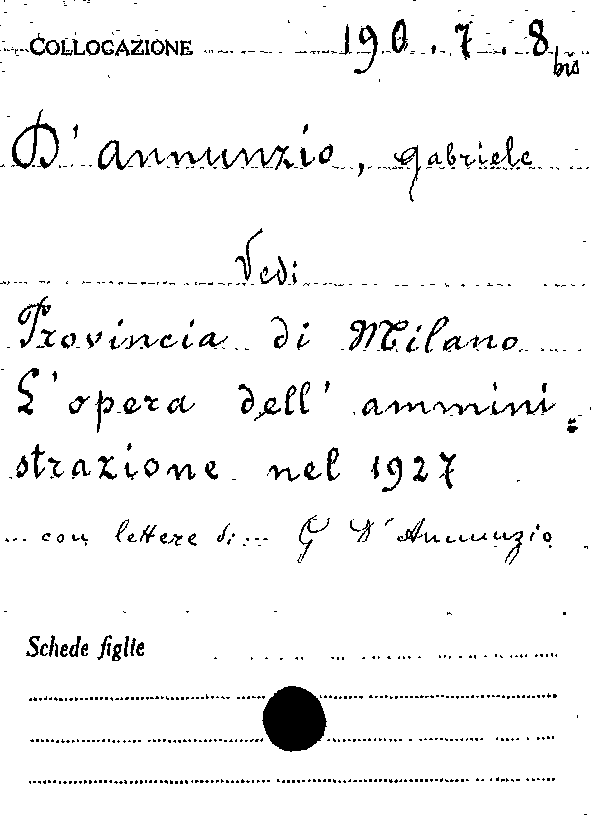 COLLOCAZIONE 190.7.8 bis
D'Annunzio, Gabriele
Vedi
Provincia di Milano
L'opera dell'ammini=
strazione nel 1927
... con lettere di... G D'Annunzio
Schede figlie